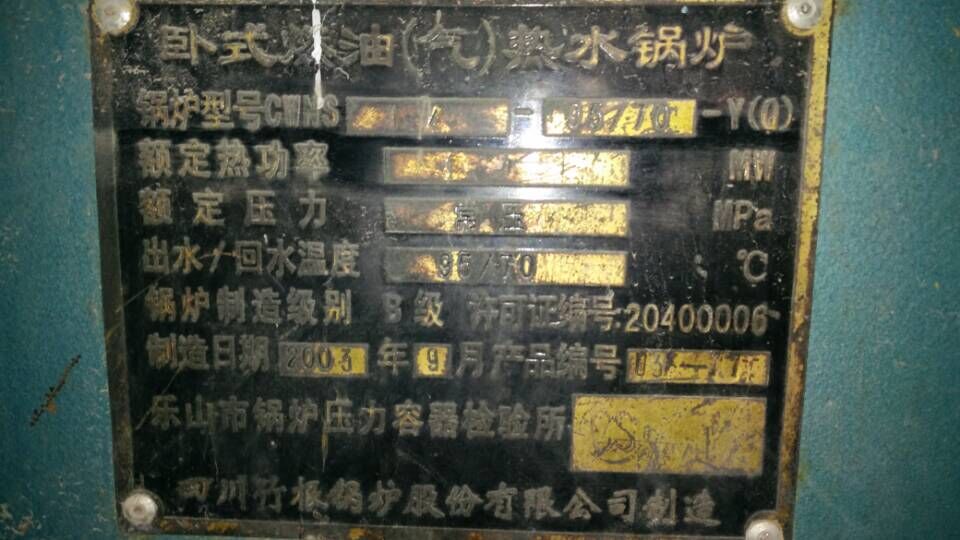 卧式燃油(气)热水锅炉
锅炉型号CWNS 1.4 - 95/70 -Y(Q)
额定热功率 MW
额定压力 常压 MPa
出水/回水温度 95/70 ℃
锅炉制造级别 B级 许可证编号:20400006
制造日期 2003 年 9 月 产品编号
乐山市锅炉压力容器检验所
四川竹根锅炉股份有限公司制造